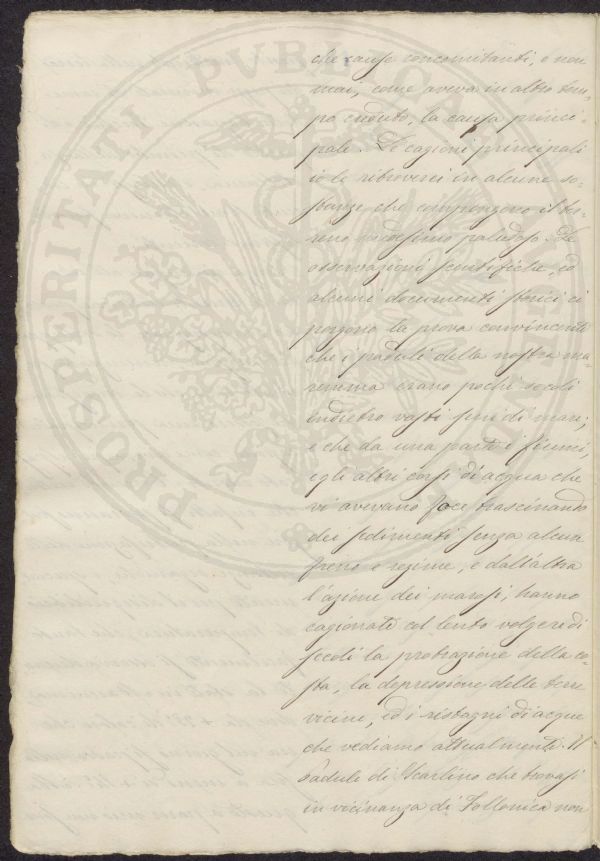 che cause concomitanti, e non
mai, come aveva in altro tem,
po creduto, la causa princi-
pale. Le cagioni principali
io le ritroverei in alcune so-
stanze che compongono il ter-
reno medesimo paludoso. Le
osservazioni scientifiche, ed
alcuni documenti storici ci
porgono la prova convincente
che i paduli della nostra ma-
remma erano pochi secoli
indietro vasti seni di mare;
e che da una parte i fiumi,
e gli altri corsi di acqua che
vi avevano foce trascinando
dei sedimenti senza alcun
freno e regime, e dall'altra
l'azione dei marosi, hanno
cagionato col lento volgere di
secoli la protrazione della co-
sta, la depressione delle terre
vicine, ed i ristagni di acque
che vediamo attualmente. Il
Padule di Scarlino che trovasi
in vicinanza di Follonica non
PROSPERITATI PVBLICAE